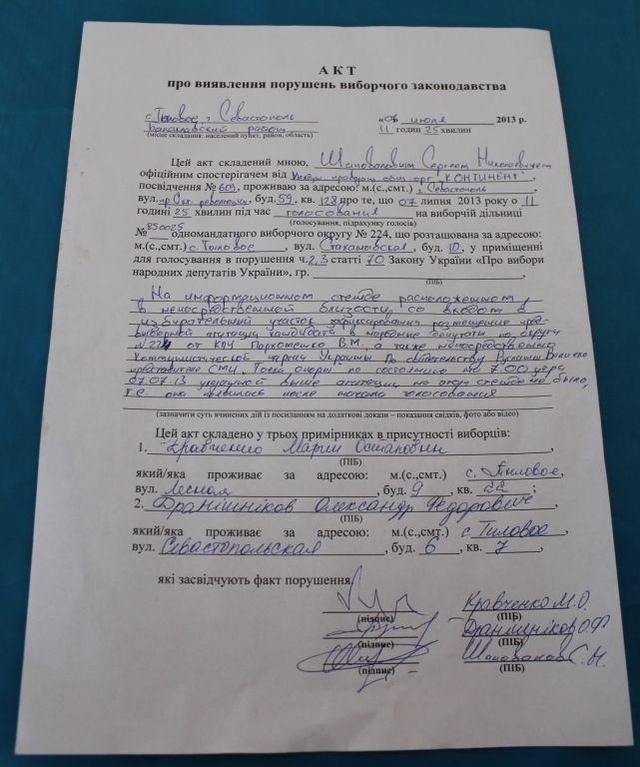 АКТ
про виявлення порушень виборчого законодавства
с. Тыловое, г. Севастополь
Балаклавский район
(місце складання: населений пункт, район, область)
июля 2013 р.
11 годин 25 хвилин
Цей акт складений мною, Сергеем Николаевичем
офіційним спостерігачем від орг "КОНТИНЕНТ",
посвідчення № 609, проживаю за адресою: м.(с.,смт.) г. Севастополь
вул. пр. Окт. революции, буд. 59, кв. 128 про те, що 07 липня 2013 року о 11
годині 25 хвилин під час голосования на виборчій дільниці
(голосування, підрахунку голосів)
№ 850025 одномандатного виборчого округу № 224, що розташована за адресою:
м.(с.,смт.) с. Тыловое, вул. Стахановская, буд. 10, у приміщенні
для голосування в порушення ч. 2,3 статті 70 Закону України «Про вибори
народних депутатів України», гр.
(ПІБ)
На информационном стенде расположенном
в непосредственной близости со входом в
избирательный участок зафиксировано размещение пред-
выборной агитации кандидата в народные депутаты по округу
№ 224 от КПУ Пархоменко В.М, а также непосредственно
Коммунистической партии Украины. По свидетельству Руслана
представителя СМИ "Точка опоры" по состоянию на 7.00 утра
07.07.13 указанной выше агитации на этом стенде не было,
т.е. она появилась после начала голосования
(зазначити суть вчинених дій із посиланням на додаткові докази – показання свідків, фото або відео)
Цей акт складено у трьох примірниках в присутності виборців:
1. Кравченко Мария Остаповна
(ПІБ)
який/яка проживає за адресою: м.(с.,смт) с. Тыловое,
вул. Лесная, буд. 9, кв. 22;
2. Дранишніков Олександр Федорович
(ПІБ)
який/яка проживає за адресою: м.(с.,смт) с Тиловое,
вул. Севастопольская, буд. 6, кв. 7,
які засвідчують факт порушення
(підпис) Кравченко М.О. (ПІБ)
(підпис) Дранишніков О.Ф (ПІБ)
(підпис) С.Н. (ПІБ)